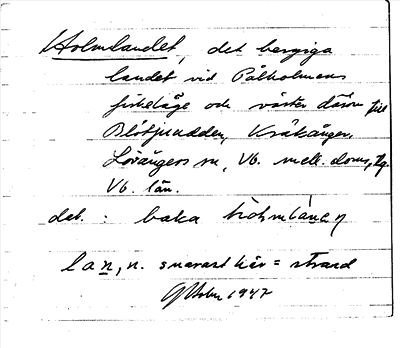 Holmlandet, det bergiga
landet vid Pålholmens
fiskeläge och väster därom till
Blötjuudden, Kråkånger
Lövångers sn, Vb. mell. doms, tg.
Vb. län.
det. : baka
lan, n. snarast här = strand
GHolm 1947